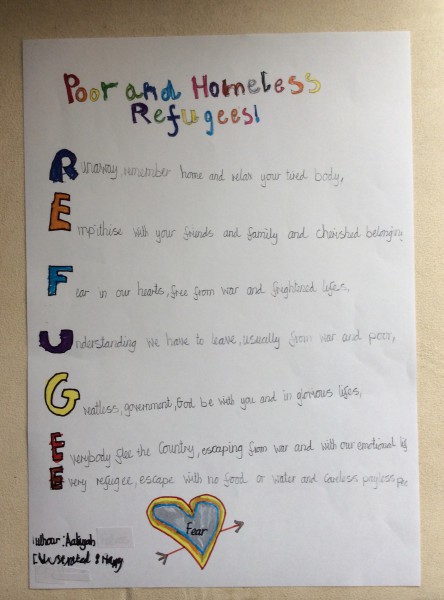 Poor and Homeless
Refugees!
Runaway, remember home and relax your tired body,
Empithise with your friends and family and cherished belonging
Fear in our hearts, free from war and frightened lifes,
Understanding we have to leave, usually from war and poor,
Greatless, government, God be with you and in glorious lifes,
Everybody flee the Country, escaping from war and with our emotional
Every refugee, escape with no food or water and careless payless
Fear
Aaliyah